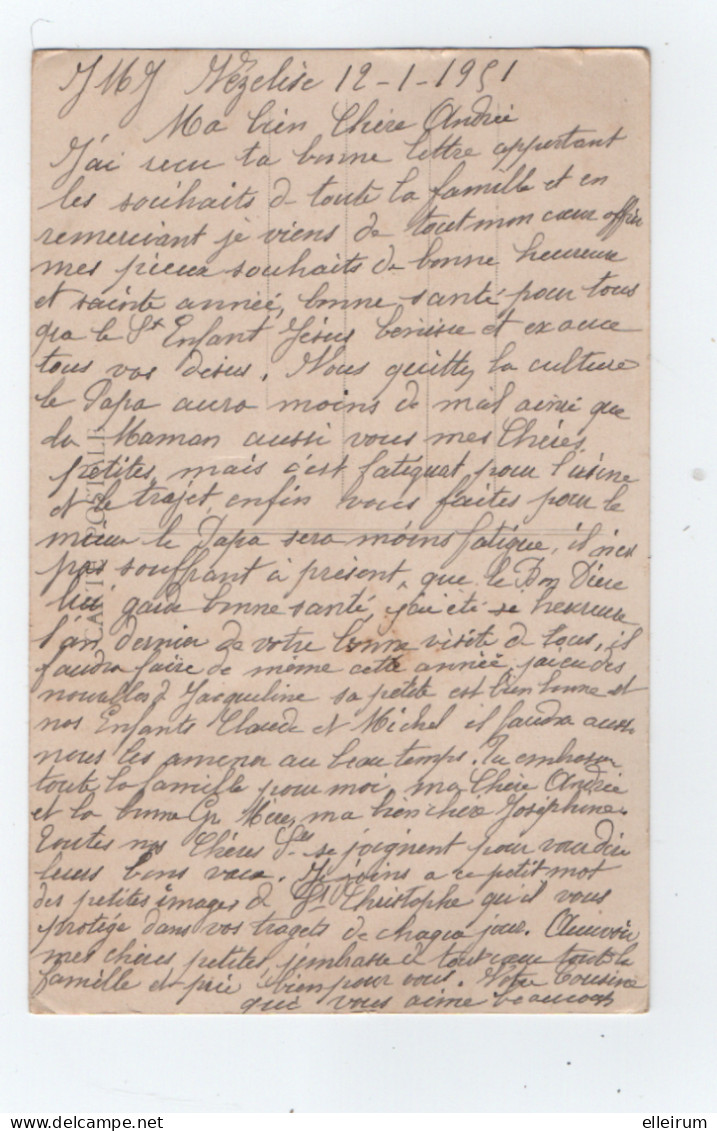 JMJ Vézelise 12-1-1951
Ma bien Chère Andrée
J'ai recu ta bonne lettre apportant
les souhaits de toute la famille et en
remerciant je viens de tout mon cœur offrir
mes pieux souhaits de bonne heureuse
et sainte année, bonne santé pour tous
que le St Enfant Jésus bénisse et exauce
tous vos désirs. Nous quittez la culture
le Papa aura moins de mal ainsi que
la Maman aussi vous mes Chères
petites, mais c'est fatiguat pour l'usine
et le trajet, enfin vous faites pour le
mieux le Papa sera moins fatigué, il n'est
pas souffrant à présent, que le Bon Dieu
lui garde bonne santé, j'ai été si heureuse
l'an dernier de votre bonne visite de tous, il
faudra faire de même cette année, j'ai eu des
nouvelles de Jacqueline sa petite est bien bonne et
nos Enfants Claude et Michel il faudra aussi
nous les amener au beau temps. Tu embrasse
toute la famille pour moi, ma Chère Andrée
et la bonne Gr Mère, ma bien chère Joséphine.
Toutes nos Chères Srs se joignent pour vous dire
leurs bons vœux. Je joins a ce petit mot
des petites images de St Christophe qu'il vous
protège dans vos tragets de chaque jour. Aurevoir
mes chères petites, j'embrasse de tout cœur toute la
famille et prie bien pour vous. Votre Cousine
qui vous aime beaucoup
CARTE POSTALE
elleirum